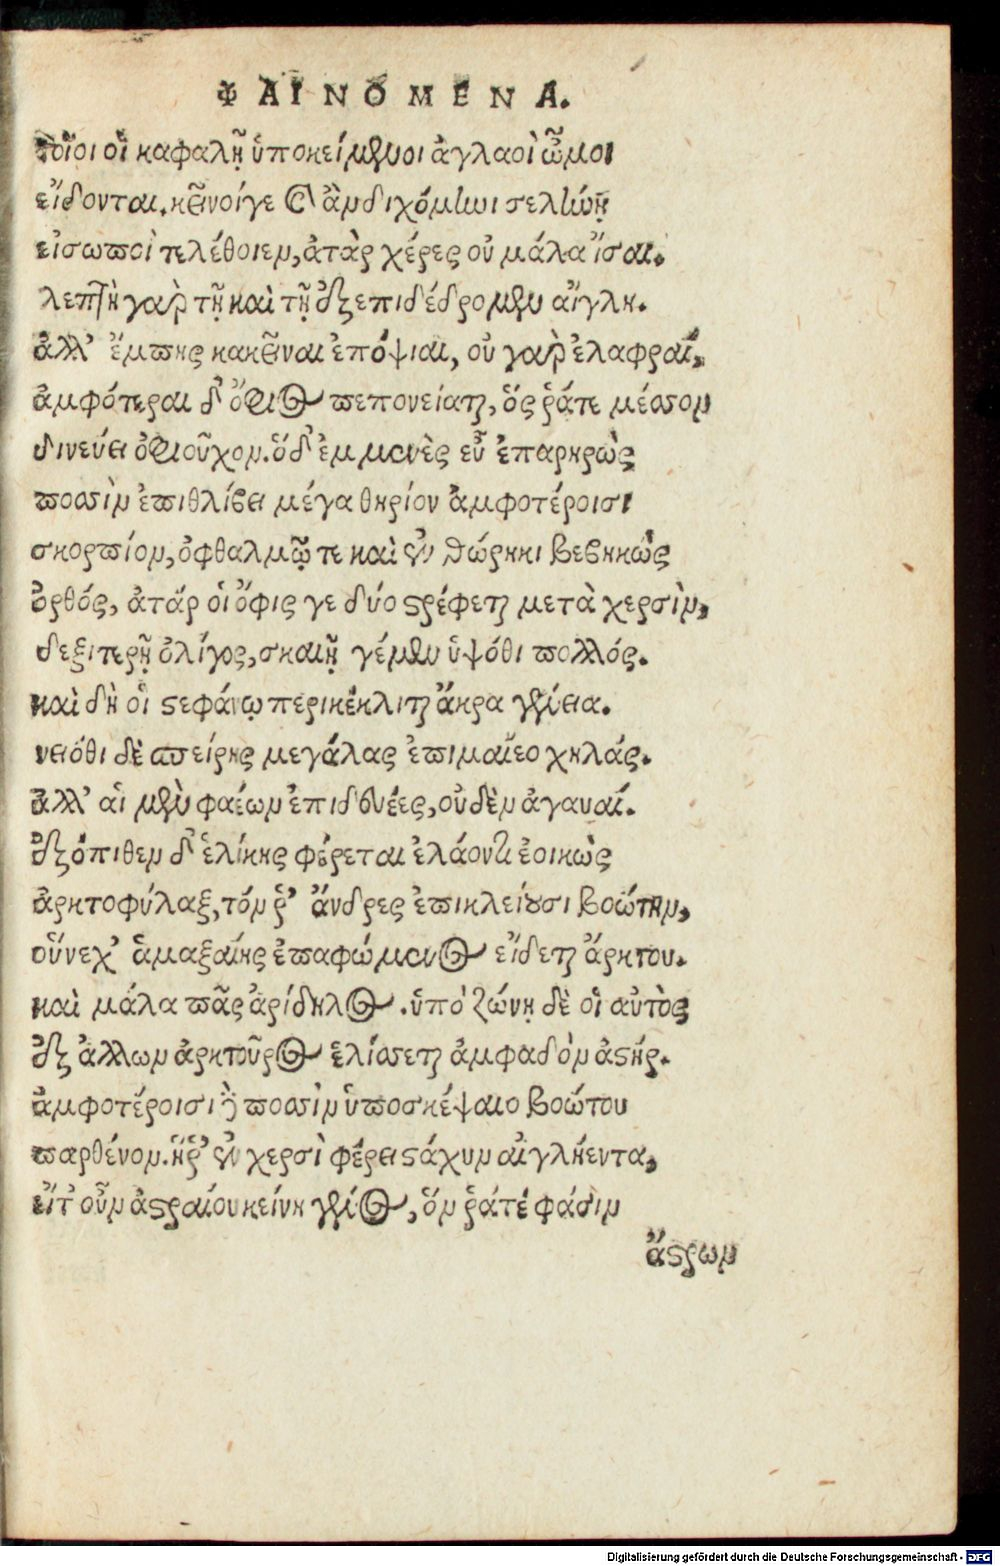 ΦΑΙΝΟΜΕΝΑ.
τοῖοι οἷ καφαλῇ ὑποκείμενοι ἀγλαοὶ ὦμοι
εἴδονται. κεῖνοίγε καὶ ἂν διχόμηνι σελήνῃ
εἰσωποὶ τελέθοιεν, ἀτὰρ χέρες οὐ μάλα ἴσαι.
λεπτὴ γαρ τῇ καὶ τῇ ἐπιδέδρομεν αἴγλη.
ἀλλ' ἔμπης κακεῖναι ἐπόψιαι, οὐ γαρ ἐλαφραί,
ἀμφότεραι δ' ὄφιος πεπονείαται, ὅς ῥάτε μέσσον
δινεύει ὀφιοῦχον. ὁδ' ἐμμενὲς εὖ ἐπαρηρὼς
ποσσὶν ἐπιθλίβει μέγα θηρίον ἀμφοτέροισι
σκορπίον, ὀφθαλμῷ τε καὶ ἐν θώρηκι βεβηκὼς
ὀρθός, ἀτάρ οἱ ὄφις γε δύο στρέφεται μετὰ χερσὶν,
δεξιτερῇ ὀλίγος, σκαιῇ γέμεν ὑψόθι πολλός.
καὶ δή οἱ στεφάνῳ περικέκλιται ἄκρα γένεια.
νειόθι δὲ σπείρης μεγάλας ἐπιμαίεο χηλάς.
ἀλλ' αἱ μὲν φαέων ἐπιδευέες, οὐδὲν ἀγαυαί.
ἐξόπιθεν δ' ἑλίκης φέρεται ἐλάοντι ἐοικὼς
ἀρκτοφύλαξ, τόν ῥ' ἄνδρες ἐπικλείουσι βοώτην,
οὕνεχ' ἁμαξαίης ἐπαφώμενος εἴδεται ἄρκτου.
καὶ μάλα πᾶς ἀρίδηλος. ὑπὸ ζώνῃ δὲ οἱ αὐτὸς
ἐξ ἄλλων ἀρκτοῦρος ἑλίσσεται ἀμφαδὸν ἀστήρ.
ἀμφοτέροισι δὲ ποσσὶν ὑποσκέψαιο βοώτου
παρθένον. ἥῥ' ἐν χερσὶ φέρει στάχυν αἰγλήεντα,
εἴτ' οὖν ἀστραίου κείνη γένος, ὅν ῥάτέ φάσιν
ἄστρων